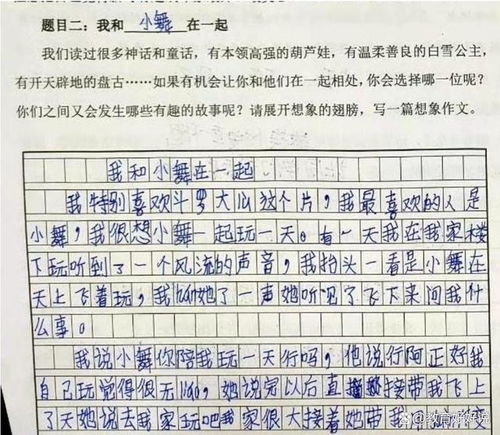 题目二：我和 小舞 在一起
我们读过很多神话和童话，有本领高强的葫芦娃，有温柔善良的白雪公主，
有开天辟地的盘古……如果有机会让你和他们在一起相处，你会选择哪一位呢？
你们之间又会发生哪些有趣的故事呢？请展开想象的翅膀，写一篇想象作文。
我和小舞在一起
我特别喜欢斗罗大山这个片，我最喜欢的人是
小舞，我很想小舞一起玩一天。有一天我在我家楼
下玩听到了一个风流的声音，我抬头一看是小舞在
天上飞着玩，我 她了一声她听见了飞下来间我什
么事。
我说小舞你陪我玩一天行吗，他说行阿正好我
自己玩觉得很无liao，她说完以后直 接带我飞上
了天她说去我家玩吧我家很大接着她带我